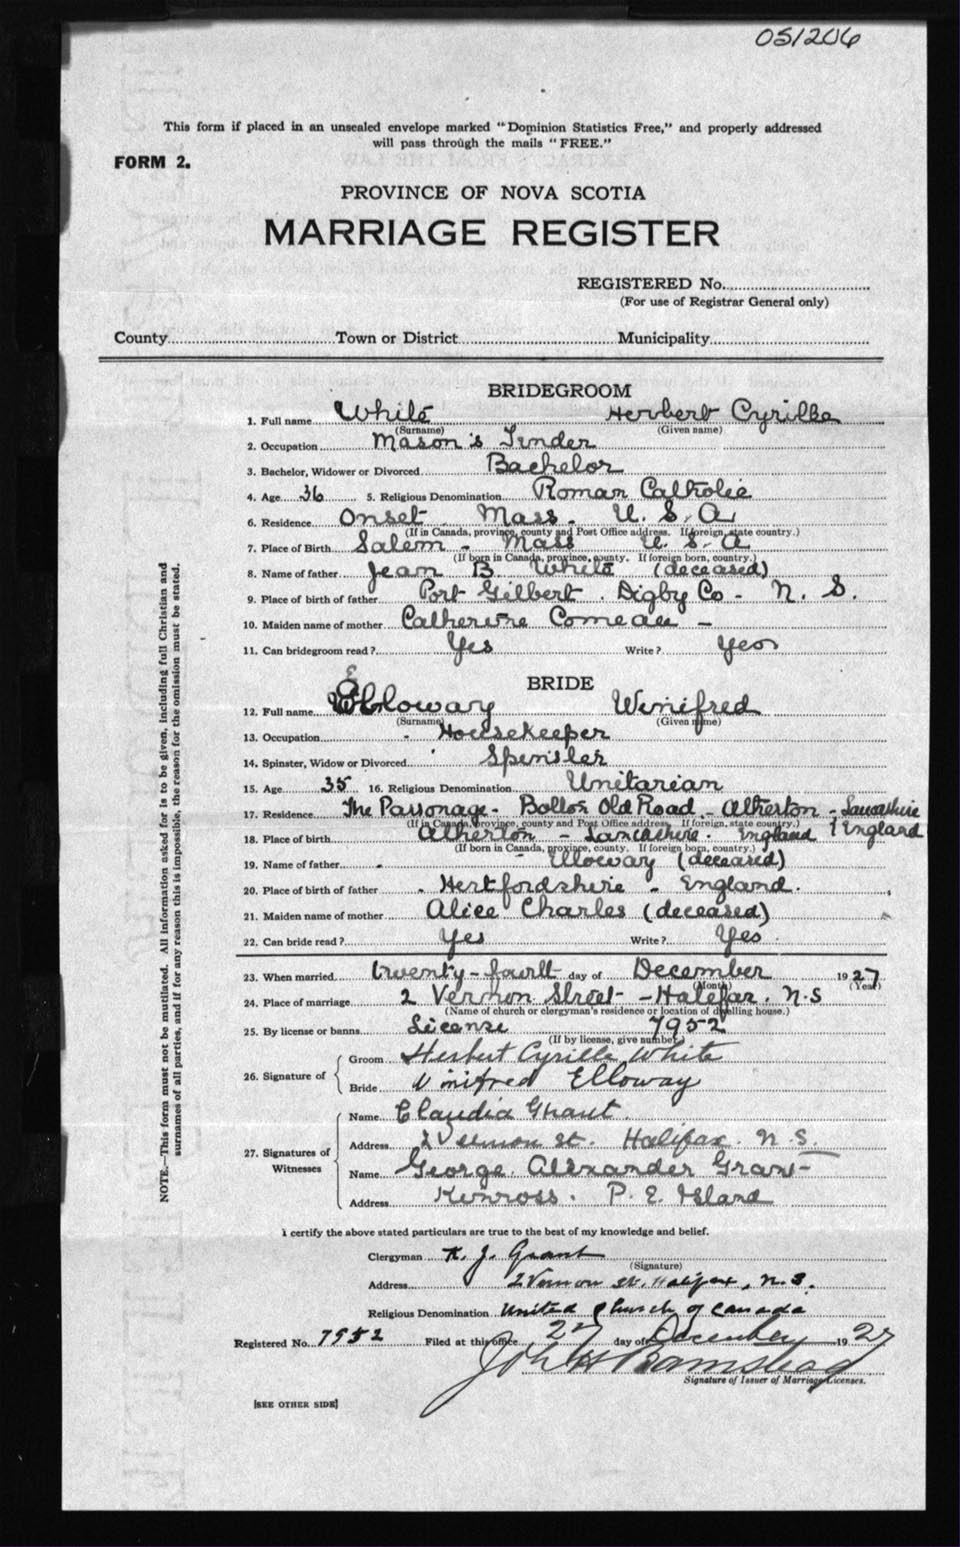 051206
This form if placed in an unsealed envelope marked "Dominion Statistics Free," and properly addressed
will pass through the mails "FREE."
FORM 2.
PROVINCE OF NOVA SCOTIA
MARRIAGE REGISTER
REGISTERED No.
(For use of Registrar General only)
County Town or District Municipality
BRIDEGROOM
1. Full name White Herbert Cyrille
(Surname) (Given name)
2. Occupation Mason's Tender
3. Bachelor, Widower or Divorced Bachelor
4. Age 36 5. Religious Denomination Roman Catholic
6. Residence Onset Mass. U. S. A
(If in Canada, province, county and Post Office address. If foreign, state country.)
7. Place of Birth Salem - Mass U. S A
(If born in Canada, province, county. If foreign born, country.)
8. Name of father Jean B. White (deceased)
9. Place of birth of father Port Gilbert. Digby Co - N. S.
10. Maiden name of mother Catherine Comeau -
11. Can bridegroom read? Yes Write? Yes
BRIDE
12. Full name Elloway Winifred
(Surname) (Given name)
13. Occupation Housekeeper
14. Spinster, Widow or Divorced Spinster
15. Age 35 16. Religious Denomination Unitarian
17. Residence The Parsonage - Old Road - Atherton - Lancashire
(If in Canada, province, county and Post Office address. If foreign, state country.) England
18. Place of birth Atherton - Lancashire. England
(If born in Canada, province, county. If foreign born, country.)
19. Name of father - Elloway (deceased)
20. Place of birth of father Hertfordshire - England.
21. Maiden name of mother Alice Charles (deceased)
22. Can bride read? Yes Write? Yes
23. When married twenty-fourth day of December 1927
(Month) (Year)
24. Place of marriage 2 Vernon Street - Halifax. N.S
(Name of church or clergyman's residence or location of dwelling house.)
25. By license or banns License 7952
(If by license, give number)
26. Signature of Groom Herbert Cyrille White
Bride Winifred Elloway
27. Signatures of Witnesses Name Claudia Grant.
Address 2 Vernon st. Halifax. N.S.
Name George Alexander Grant
Address Kinross. P. E. Island
NOTE.—This form must not be mutilated. All information asked for is to be given, including full Christian and
surnames of all parties, and if for any reason this is impossible, the reason for the omission must be stated.
I certify the above stated particulars are true to the best of my knowledge and belief.
Clergyman K. J. Grant
(Signature)
Address 2 Vernon St. Halifax, N.S.
Religious Denomination United Church of Canada
Registered No. 7952 Filed at this office 27 day of December 1927
John H Barnstead
Signature of Issuer of Marriage Licenses.
[SEE OTHER SIDE]